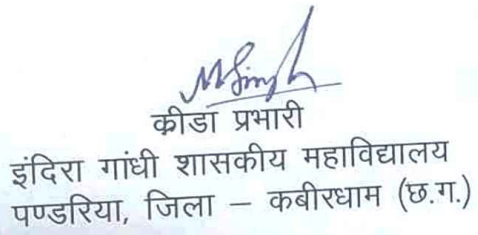 MSingh
कीडा प्रभारी
इंदिरा गांधी शासकीय महाविद्यालय
पण्डरिया, जिला – कबीरधाम (छ.ग.)